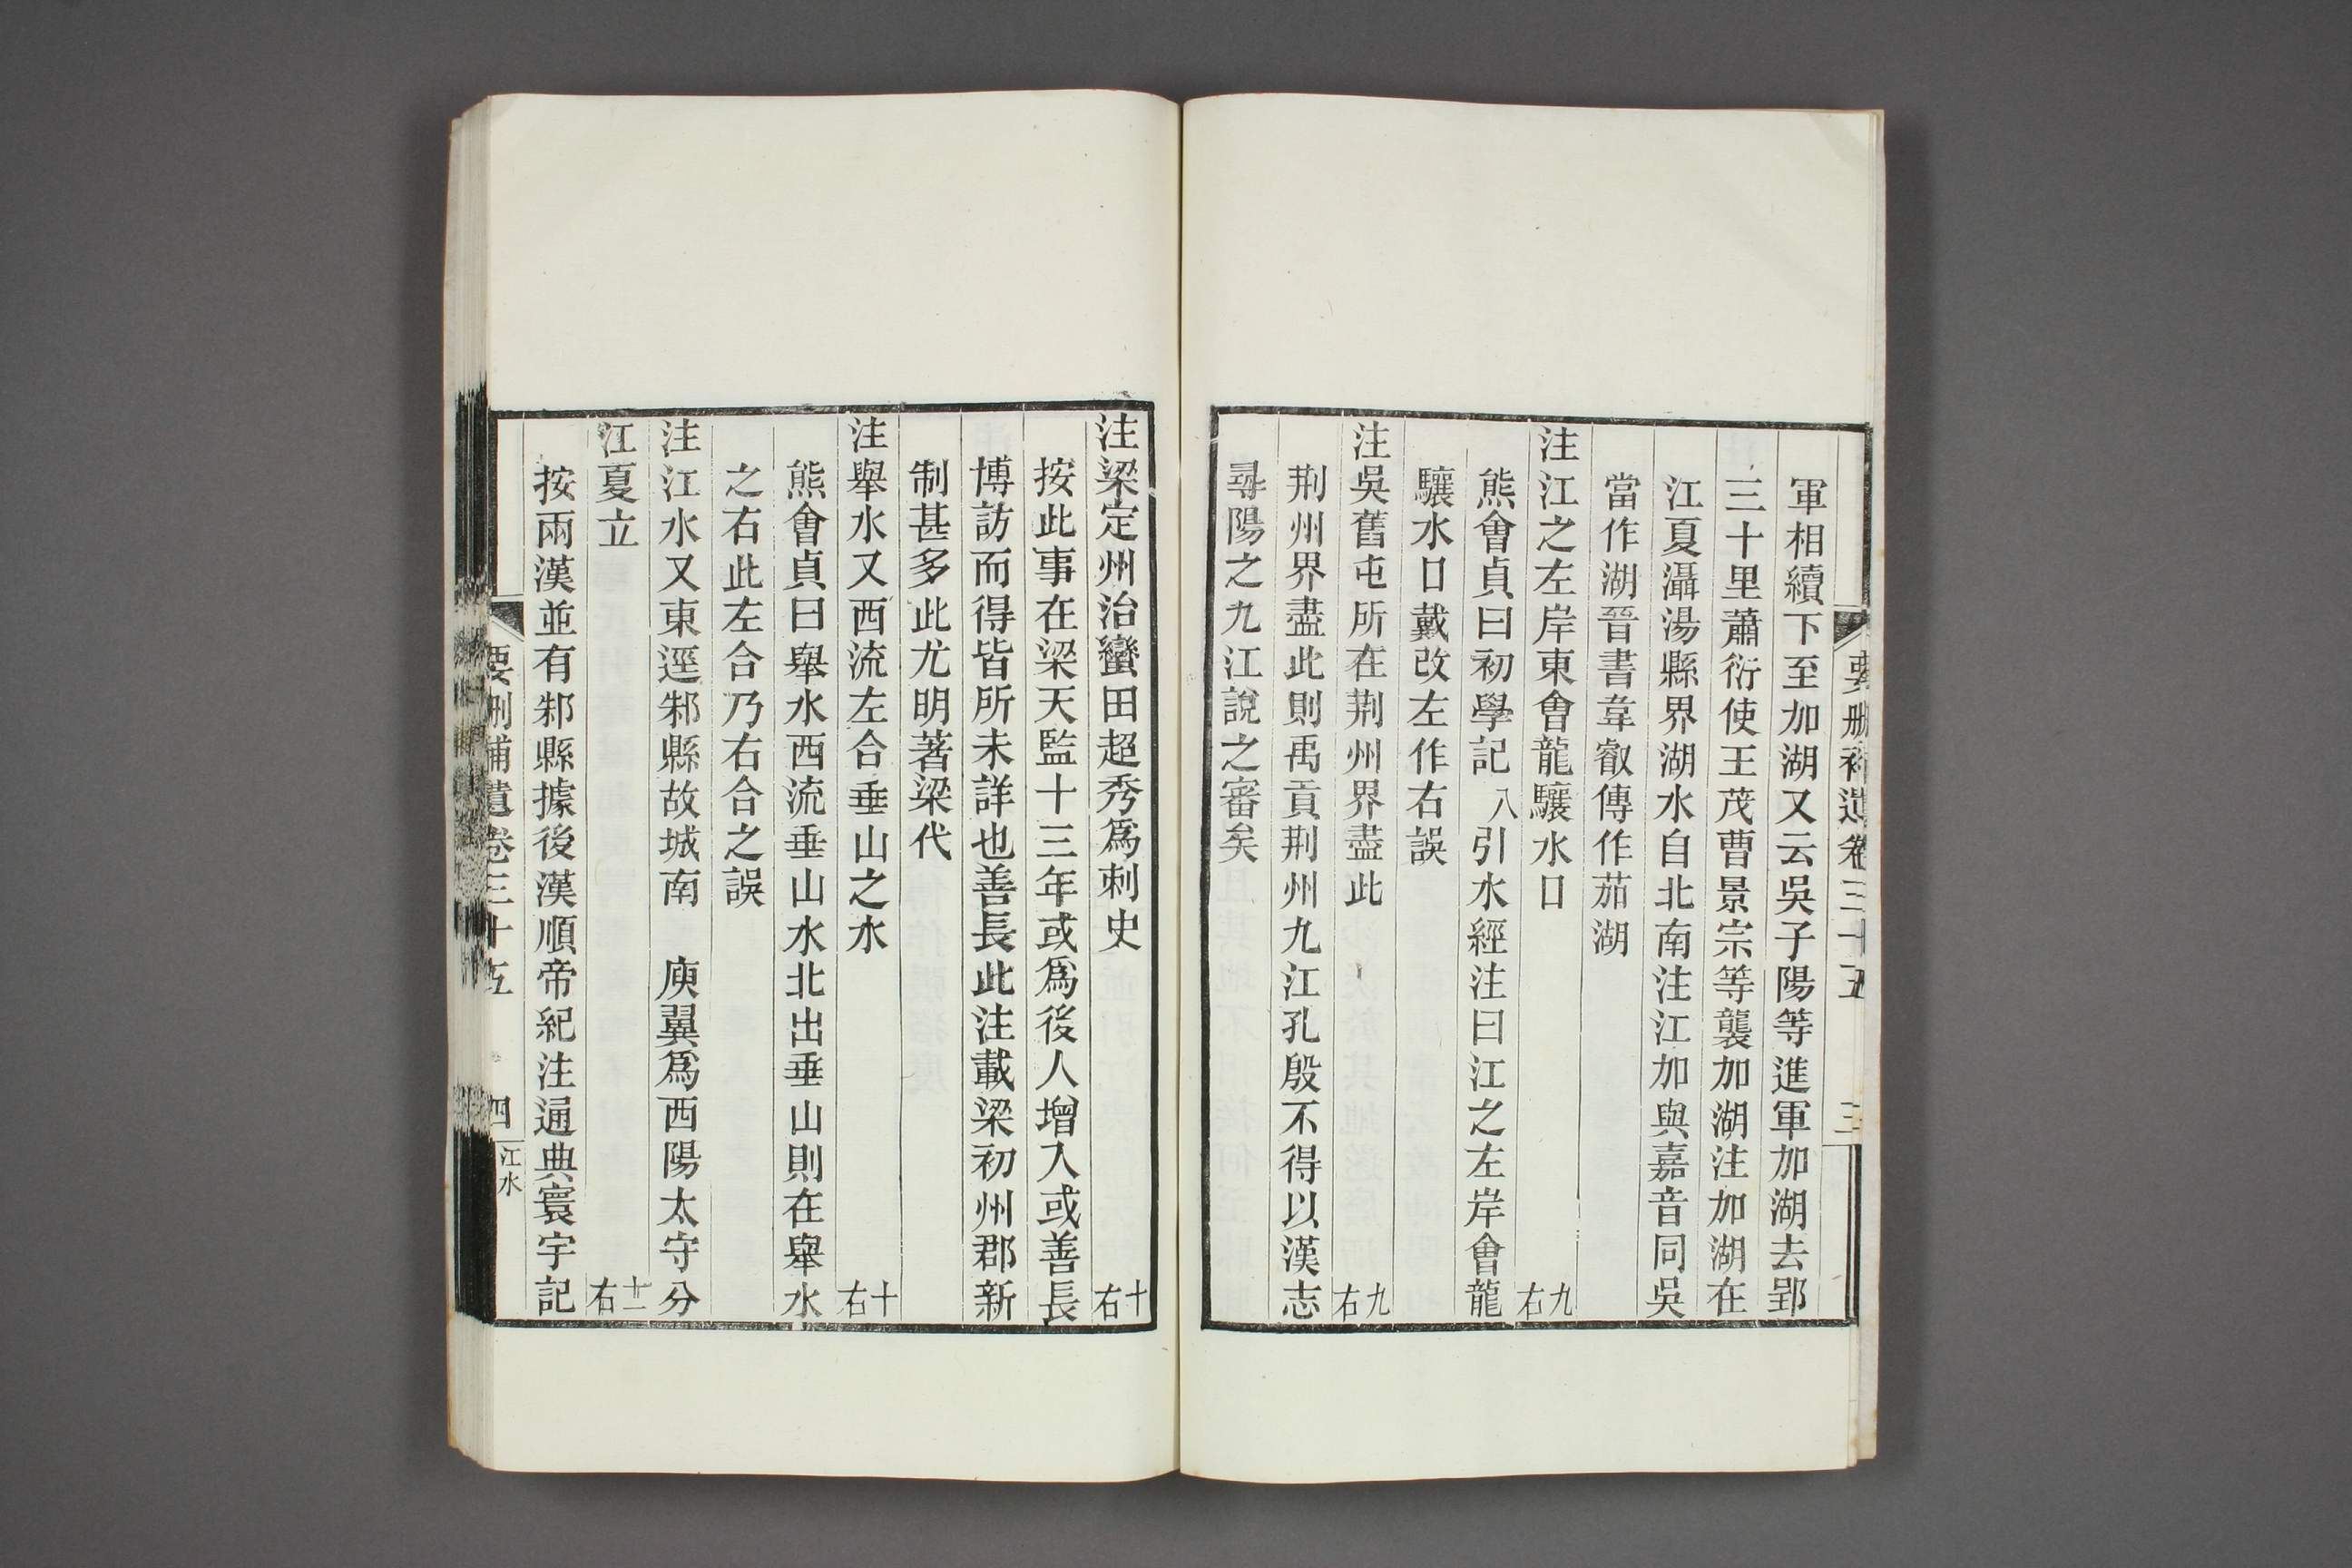 要刪補遺卷三十五
三
軍相續下至加湖又云吳子陽等進軍加湖去郢
三十里蕭衍使王茂曹景宗等襲加湖注加湖在
江夏灄湯縣界湖水自北南注江加與嘉音同吳
當作湖晉書韋叡傳作茄湖
注江之左岸東會龍驤水口 九右
熊會貞曰初學記 八引水經注曰江之左岸會龍
驤水口戴改左作右誤
注吳舊屯所在荆州界盡此 九右
荆州界盡此則禹貢荆州九江孔殷不得以漢志
尋陽之九江說之審矣
注梁定州治蠻田超秀爲刺史 十右
按此事在梁天監十三年或爲後人增入或善長
博訪而得皆所未詳也善長此注載梁初州郡新
制甚多此尤明著梁代
注舉水又西流左合垂山之水 十右
熊會貞曰舉水西流垂山水北出垂山則在舉水
之右此左合乃右合之誤
注江水又東逕邾縣故城南 庾翼爲西陽太守分
江夏立 十一右
按兩漢並有邾縣據後漢順帝紀注通典寰宇記
要刪補遺卷三十五
四
江水